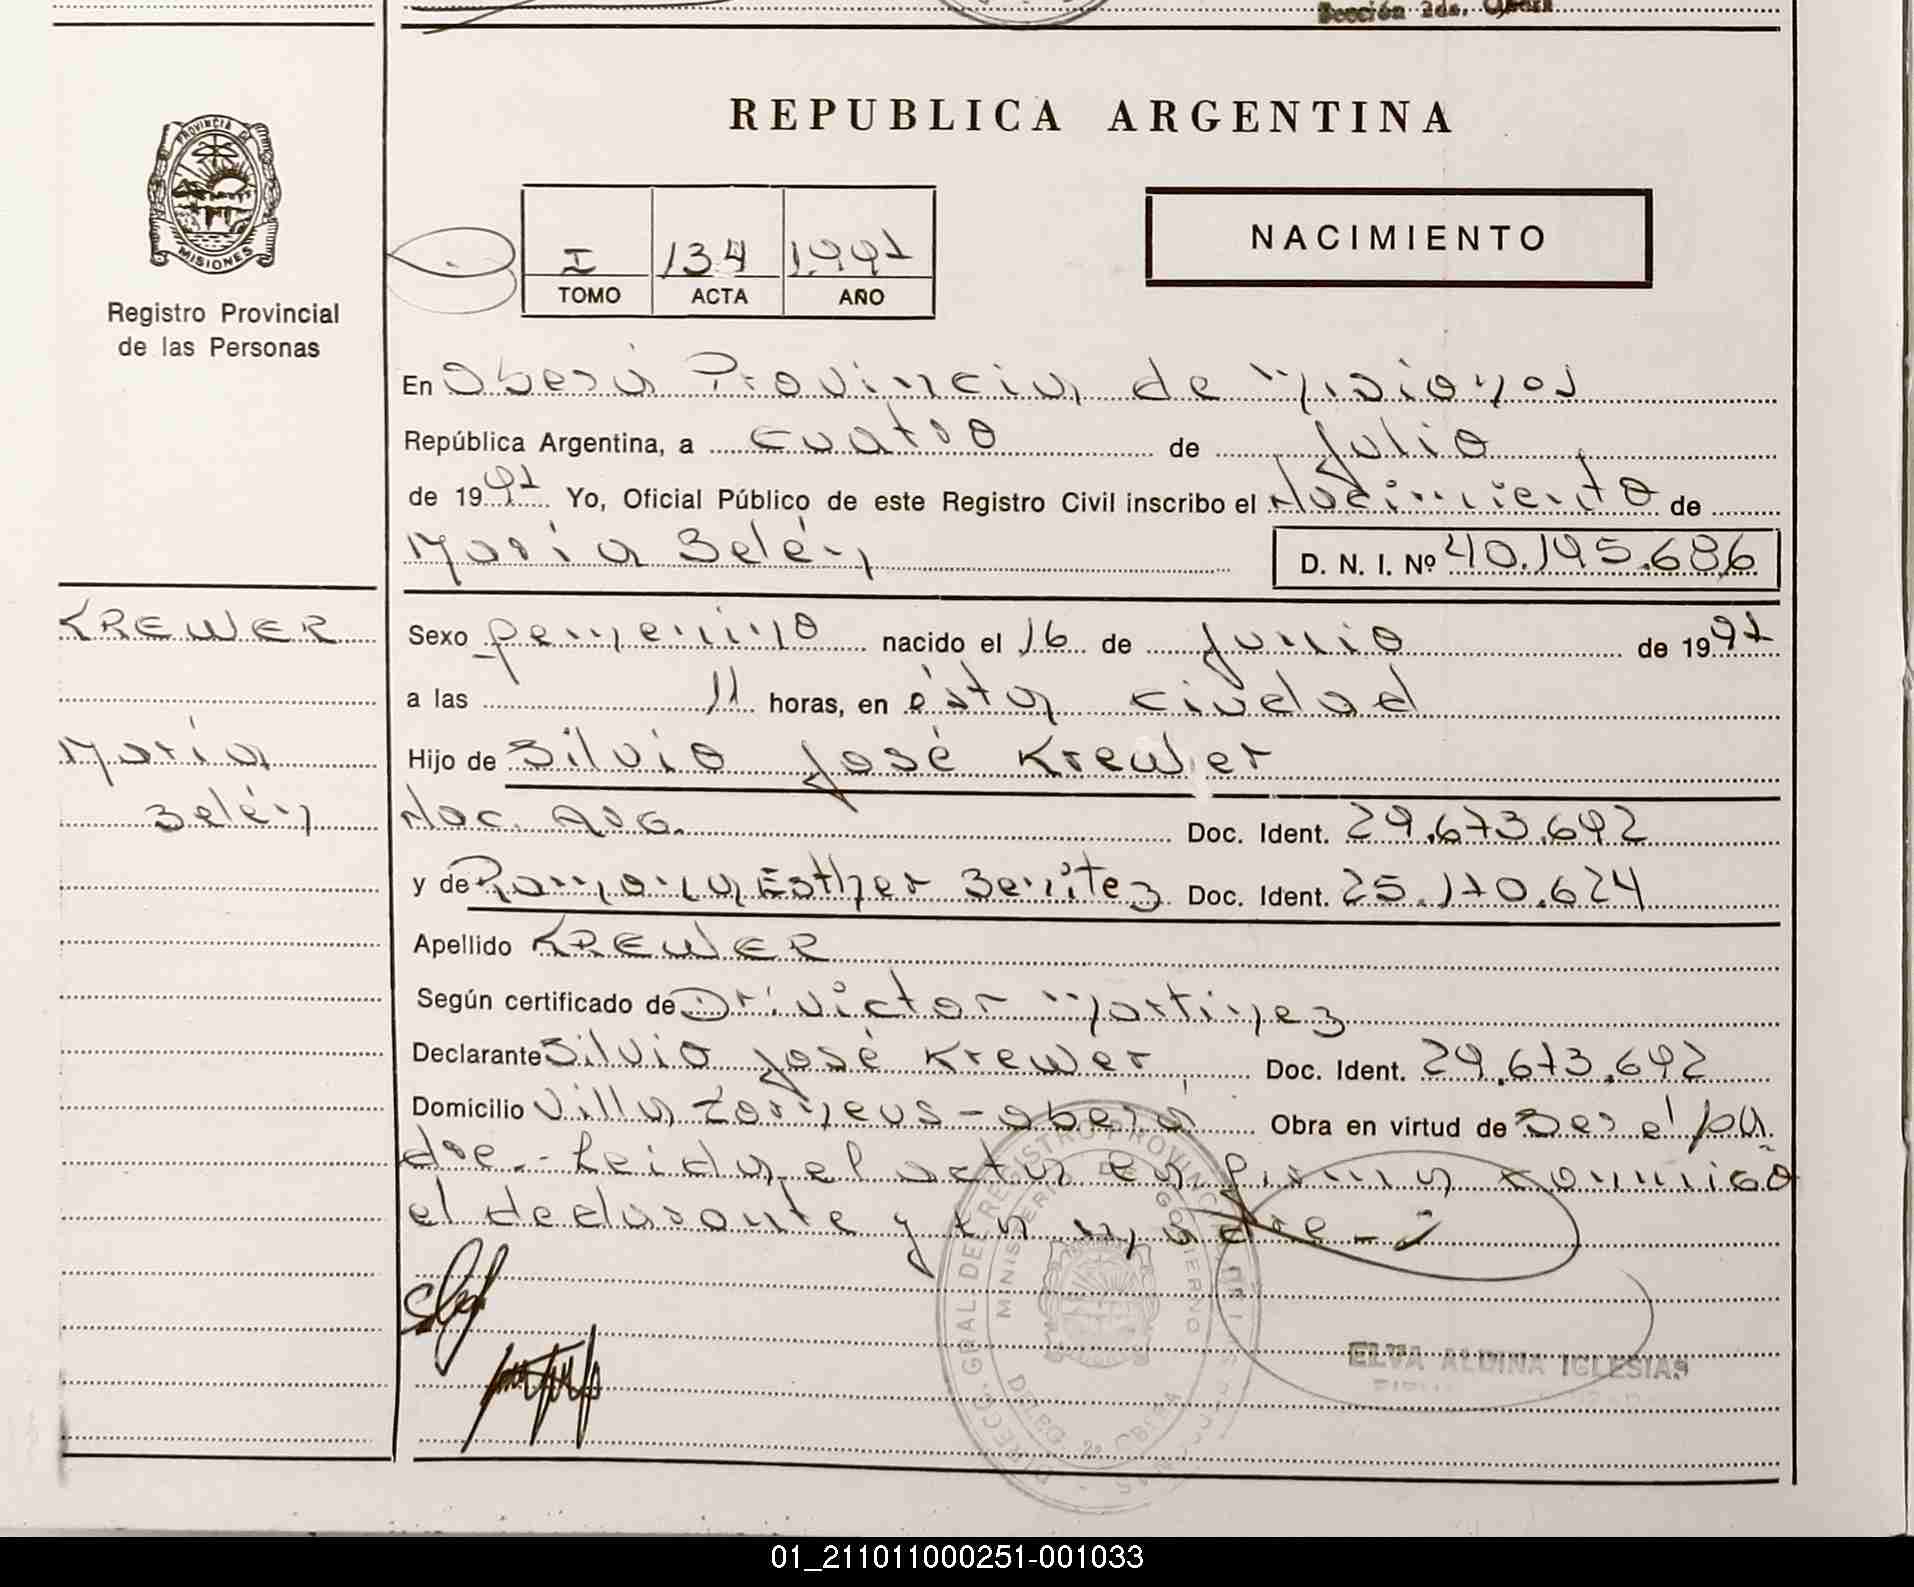 Sección 2da. Oberá
REPUBLICA ARGENTINA
PROVINCIA DE
MISIONES
Registro Provincial
de las Personas
I 134 1.997
TOMO ACTA AÑO
NACIMIENTO
En Oberá Provincia de Misiones
República Argentina, a cuatro de Julio
de 1997 Yo, Oficial Público de este Registro Civil inscribo el Nacimiento de
María Belén D. N. I. Nº 40.195.686
KREWER
María
Belén
Sexo femenino nacido el 16 de Junio de 1997
a las 11 horas, en ésta ciudad
Hijo de Silvio José Krewer
Nac. Arg. Doc. Ident. 29.673.692
y de Ramona Esther Benítez Doc. Ident. 25.170.624
Apellido KREWER
Según certificado de Dr. Victor Martinez
Declarante Silvio José Krewer Doc. Ident. 29.673.692
Domicilio Villa - Oberá Obra en virtud de Ser el pa
dre.- Leida el acta en firman conmigo
el declarante y la madre.-
DIRECC. GRAL DEL REGISTRO PROVINCIAL DE LAS PERSONAS
MINISTERIO DE GOBIERNO
DELEG. 2º OBERA
ELVA ALDINA IGLESIAS
01_211011000251-001033